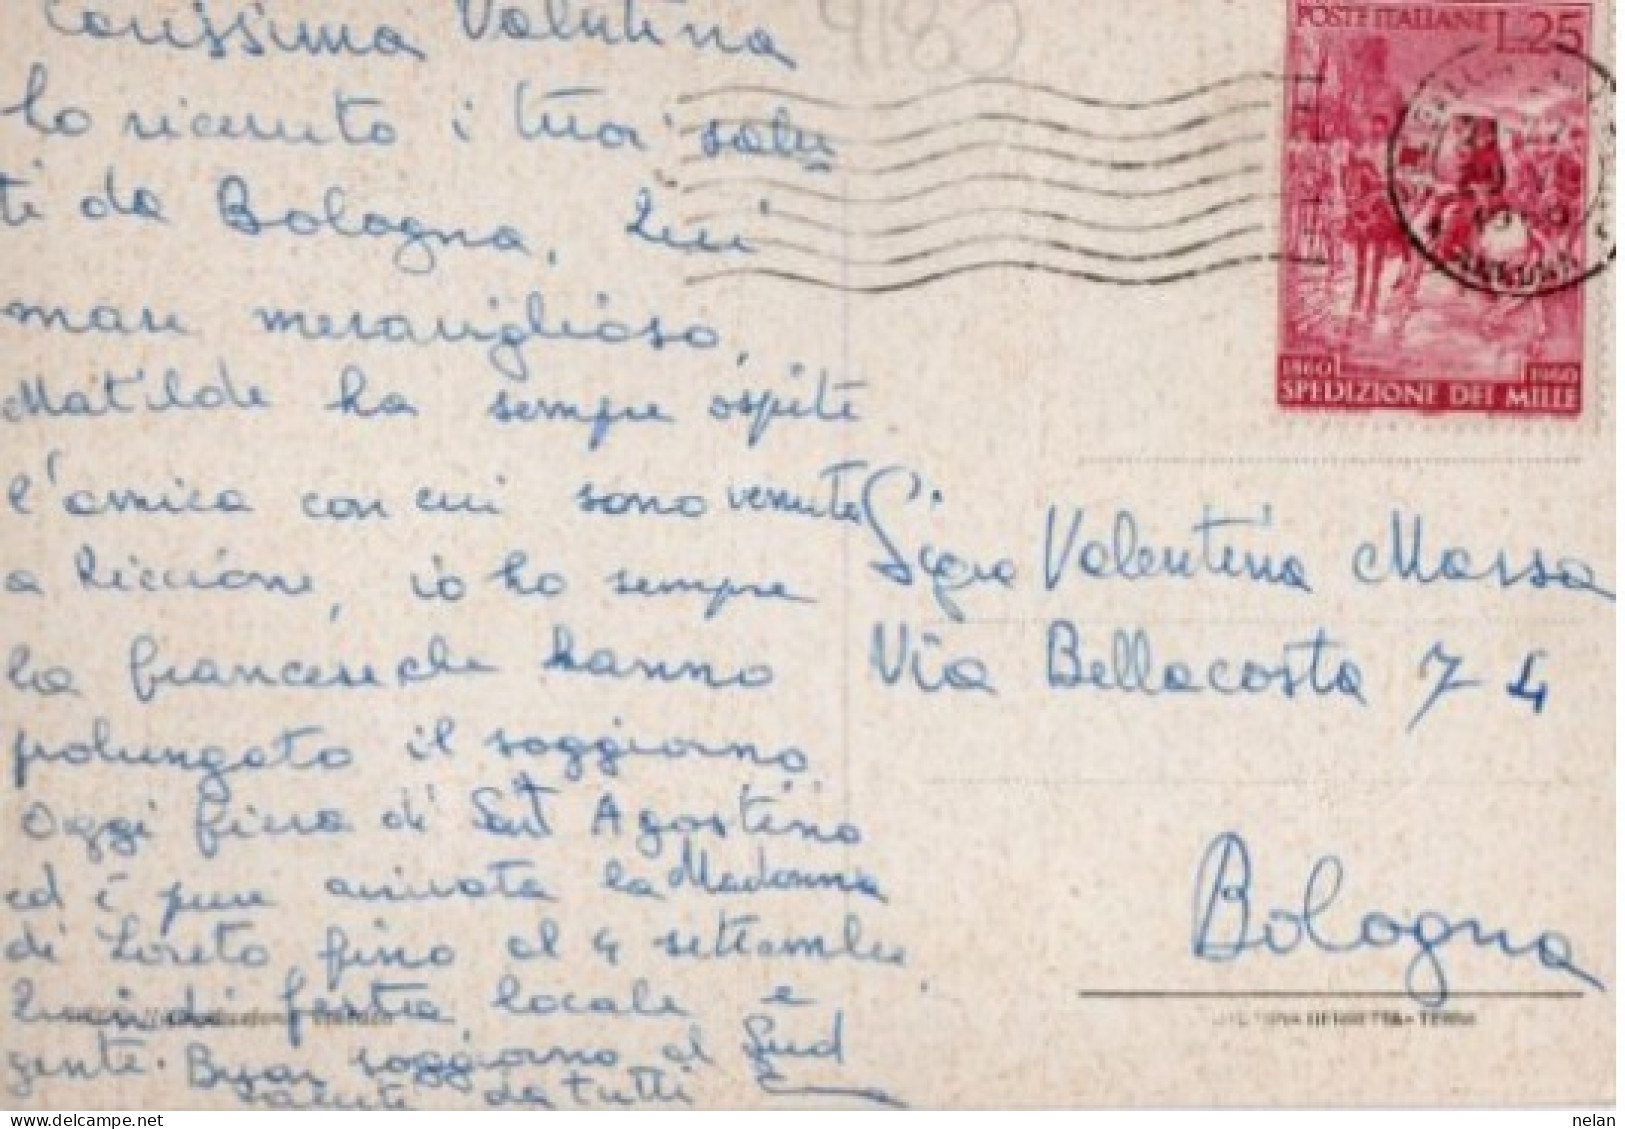 Carissima Valentina
ho ricevuto i tuoi salu
ti da Bologna. Qui
mare meraviglioso,
Matilde ha sempre ospite
l'amica con cui sono venuta
a Riccione, io ho sempre
la francese che hanno
prolungato il soggiorno.
Oggi fiera di Sant Agostino
ed è pure arrivata la Madonna
di Loreto, fino al 4 settembre
Quindi festa locale e
gente. Buon soggiorno al Sud
saluti da tutti
4180
POSTE ITALIANE L.25
1860 1960
SPEDIZIONE DEI MILLE
ANCONA
Sig.ra Valentina Massa
Via Bellacosta 74
Bologna
nelan